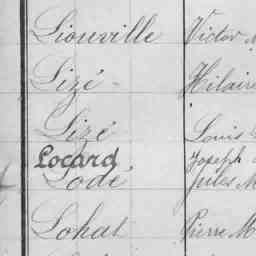 Liouville Victor
Lizé - Hilaire
Lizé Louis
Locard Joseph
Lodé Jules M
Lohat Pierre M